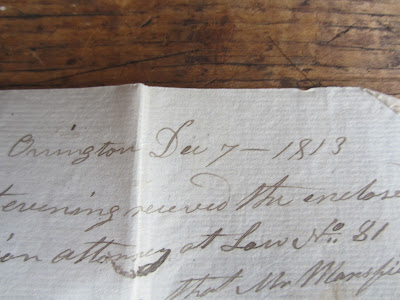 Orrington Dec 7 - 1813
evening received the enclose
an attorney at Law No. 81
that Mr Mansfie